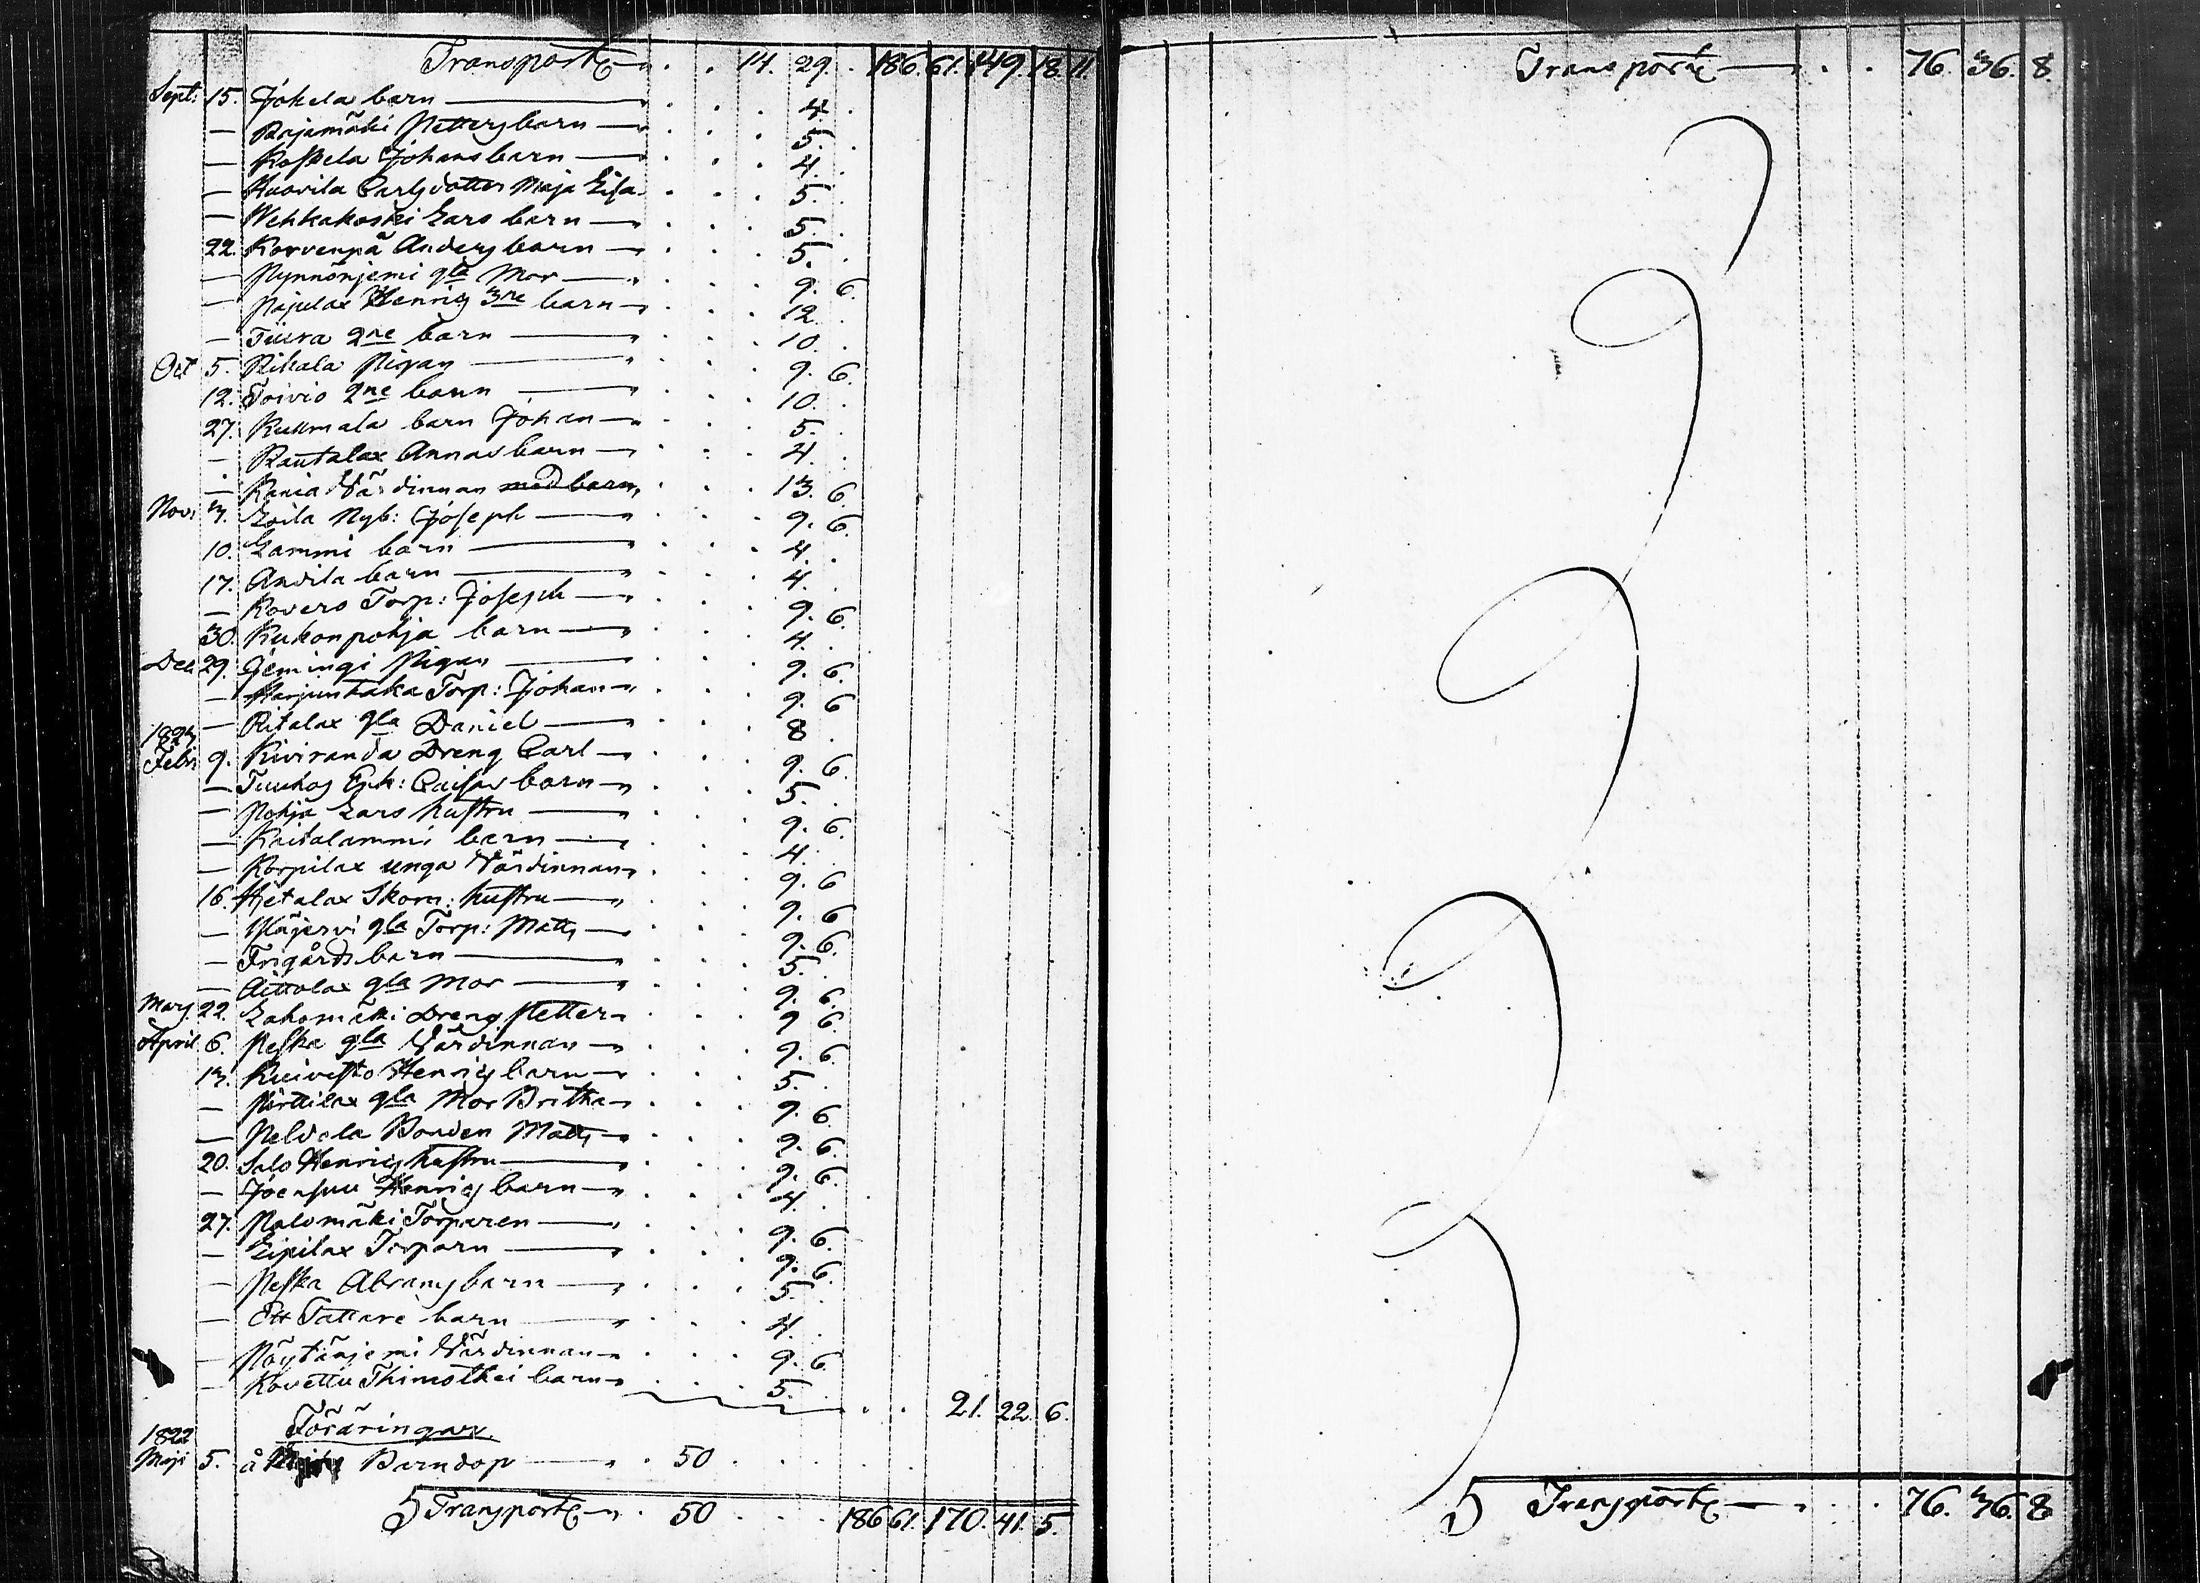 Transport — 14. 29. 186. 61. 149. 18. 11
Sept: 15. Jokela barn — 4.
— Rajamäki Petters barn — 5.
— Koskela Johans barn — 4.
— Huovila Carlsdotter Maja Lisa 5.
— Wehkakoski Lars barn — 5.
22. Korvenpä Anders barn — 5.
— Nynnönjemi gla Mor — 9. 6.
— Pajulax Henrics 3ne barn — 12.
— Tiura 2ne barn — 10.
Oct 5. Rikala Pigan — 9. 6.
12. Toivio 2ne barn — 10.
27. Kukmala barn Johan — 5.
— Rautalax Annas barn — 4.
— Kania Värdinnan med barn, 13. 6.
Nov: 3. Loila Nyb: Joseph — 9. 6.
10. Lammi barn — 4.
17. Andila barn — 4.
— Rovero Torp: Joseph — 9. 6.
30. Kukonpohja barn — 4.
Dec 29. Jemingi Pigan — 9. 6.
— Harjuntaka Torp: Johan — 9. 6
— Ritalax gla Daniel — 8
1823
Febr: 9. Kiviranda Dreng Carl — 9. 6.
— Tuuhos Enk: Caisas barn — 5.
— Pohja Lars hustru — 9. 6.
— Kaitalammi barn — 4.
— Korpilax unga Värdinnan 9. 6
16. Hietalax Skom: hustru — 9. 6
— Yläjervi gla Torp: Matts — 9. 6.
— Frigårds barn — 5.
— Aittolax gla Mor — 9. 6.
Mars 22. Lahomäki Dreng Petter 9 6.
April 6. Peska gla Värdinnan — 9. 6.
13. Kuivisto Henrics barn — 5.
— Pirttilax gla Mor Britha 9. 6.
— Peldola Bonden Matts — 9. 6.
20. Salo Henrics hustru — 9. 6.
— Joensuu Henrics barn — 4.
27. Palomäki Torparen — 9. 6.
— Lipilax Torparn — 9. 6.
— Peska Abrams barn — 5.
— Ett Tattare barn — 4.
— Pöytänjemi Värdinnan — 9. 6
— Kovettu Thimothei barn 5.
21. 22. 6.
Föräringar
1822
Maji 5. å Barndop — 50
Transport — 50 186 61. 170. 41. 5.
Transport — 76. 36. 8.
Transport — 76. 36. 8